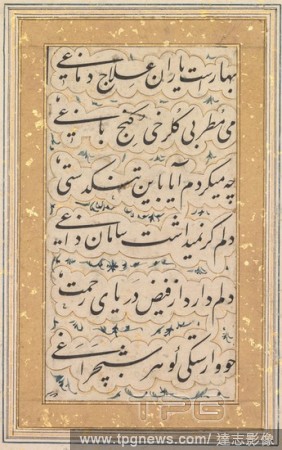 بهارست یاران علاج دماغی
می مطربی گلرخی کنج باغی
چه میکردم آیا باین تنگدستی
دلم گر نمیداشت سامان داغی
دلم دارد از فیض دریای رحمت
چو وارستگی
TPG
www.tpgnews.com/ 達志影像